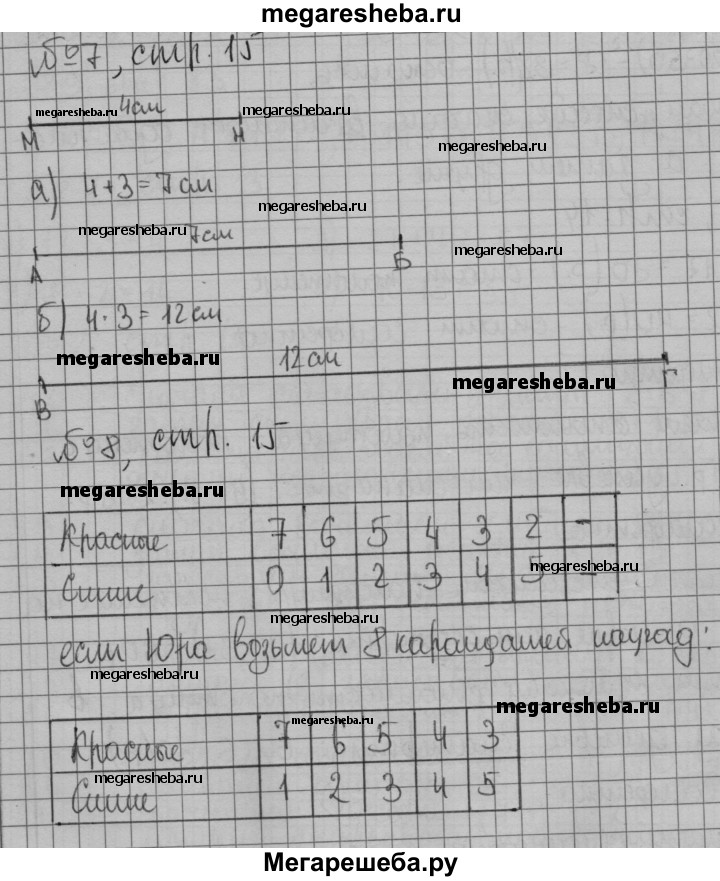 megaresheba.ru
№7, стр. 15
megaresheba.ru 4см megaresheba.ru
М Н
megaresheba.ru
а) 4+3=7см
megaresheba.ru
megaresheba.ru 7см
megaresheba.ru
А Б
б) 4·3=12см
megaresheba.ru 12см
megaresheba.ru
В Г
№8, стр. 15
megaresheba.ru
Красные 7 6 5 4 3 2 -
megaresheba.ru
Синие 0 1 2 3 4 5 -
megaresheba.ru
если Юра возьмет 8 карандашей наугад:
megaresheba.ru
megaresheba.ru
megaresheba.ru
Красные 7 6 5 4 3
megaresheba.ru
Синие 1 2 3 4 5
Мегарешеба.ру